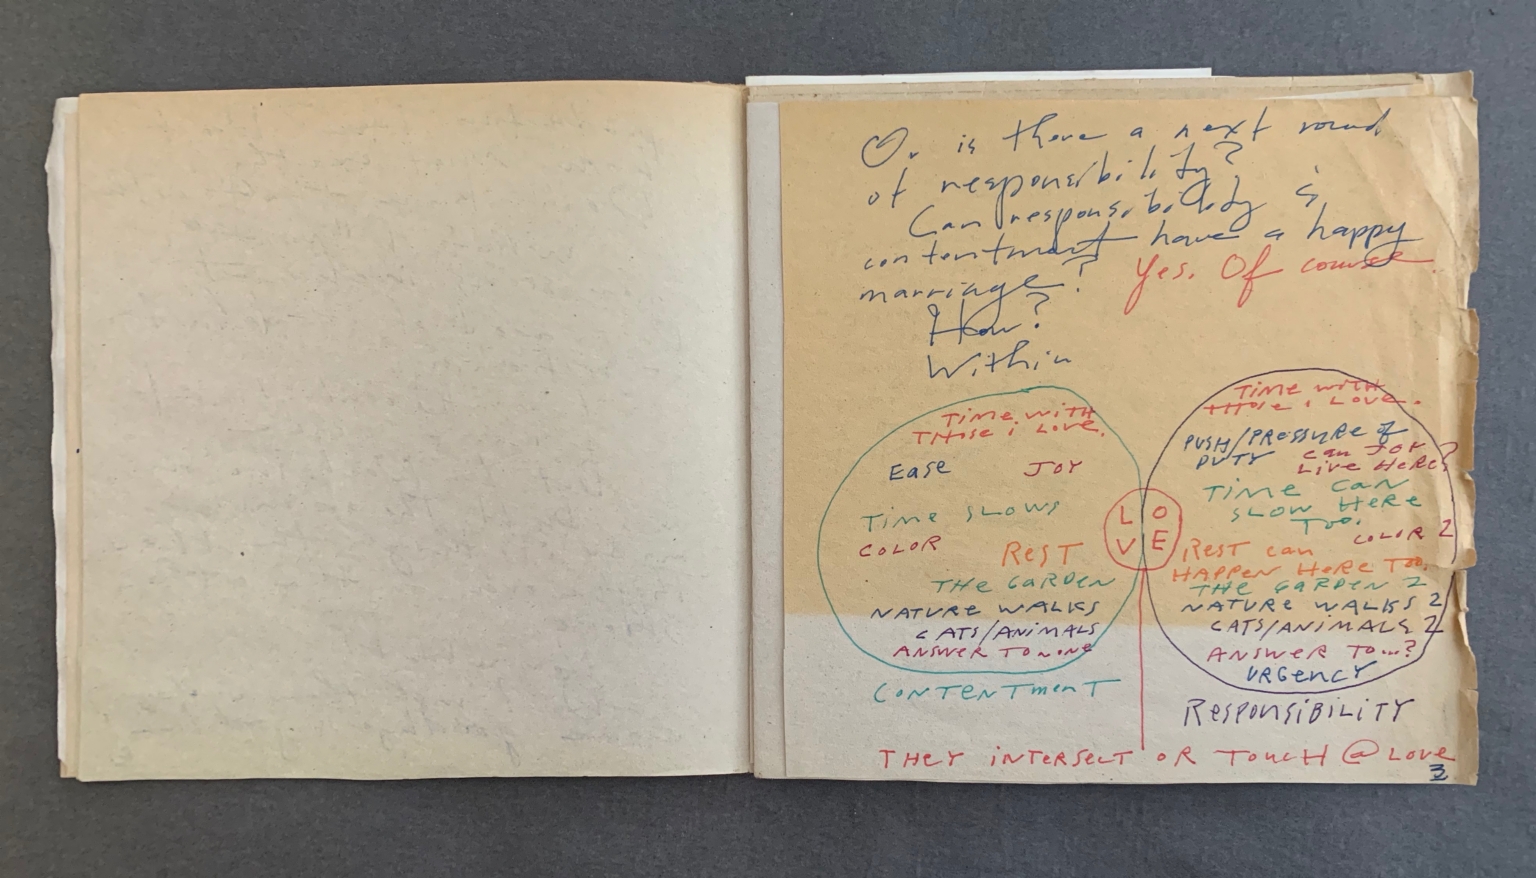 Or is there a next round
of responsibility?
Can responsibility &
contentment have a happy
marriage? Yes. Of course.
How?
Within
TIME WITH
THOSE I LOVE.
EASE JOY
TIME SLOWS
COLOR
REST
THE GARDEN
NATURE WALKS
CATS/ANIMALS
ANSWER TO NONE
CONTENTMENT
L O
V E
TIME WITH
THOSE I LOVE.
PUSH/PRESSURE OF
DUTY CAN JOY
LIVE HERE?
TIME CAN
SLOW HERE
TOO.
COLOR 2
REST CAN
HAPPEN HERE TOO.
THE GARDEN 2
NATURE WALKS 2
CATS/ANIMALS 2
ANSWER TO...?
URGENCY
RESPONSIBILITY
THEY INTERSECT OR TOUCH @ LOVE
3